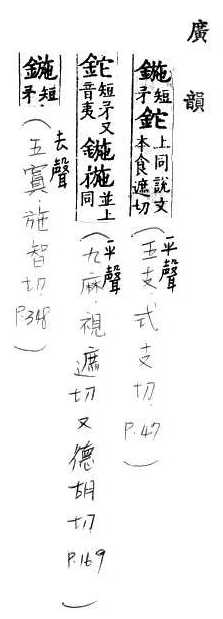 廣韻
鍦短矛鉈上同說文本食遮切(平聲五支.式支切.P.47)
鉈短矛又音夷鍦並上同(平聲九麻.視遮切又德胡切P.169)
鍦短矛(去聲五寘.施智切P.348)